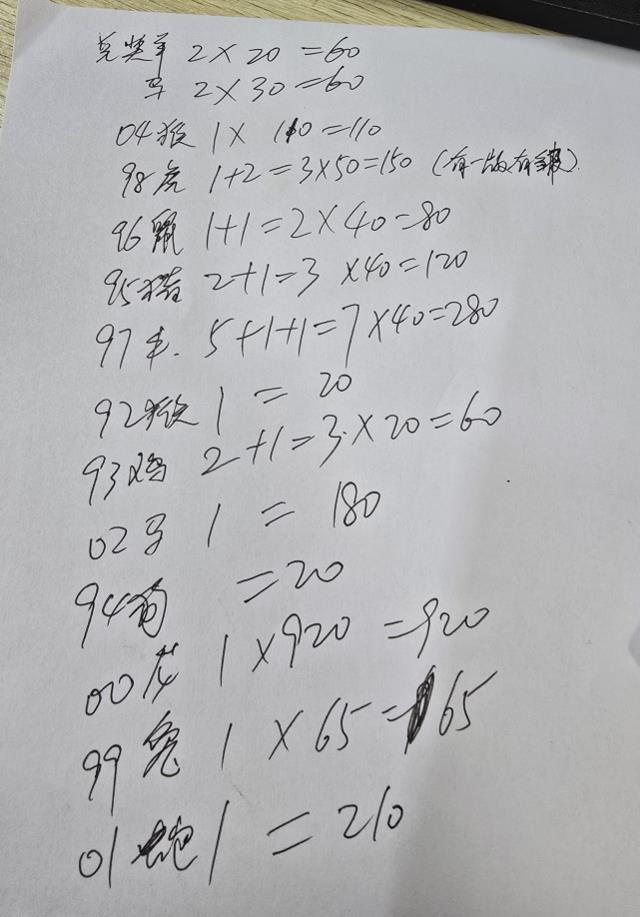 兑奖羊 2×20=60
马 2×30=60
04猴 1×110=110
98虎 1+2=3×50=150 (有一版有
96鼠 1+1=2×40=80
95猪 2+1=3×40=120
97牛. 5+1+1=7×40=280
92猴 1=20
93鸡 2+1=3.×20=60
02马 1=180
94狗 =20
00龙 1×920=920
99兔 1×65=65
01蛇 1=210